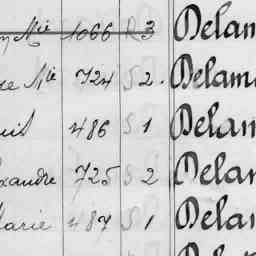 Mie 1066 R 3 Delam
se Nie 724 S 2. Delam
uis 486 S 1 Delam
exandre 725 S 2 Delan
Marie 487 S 1 Dela